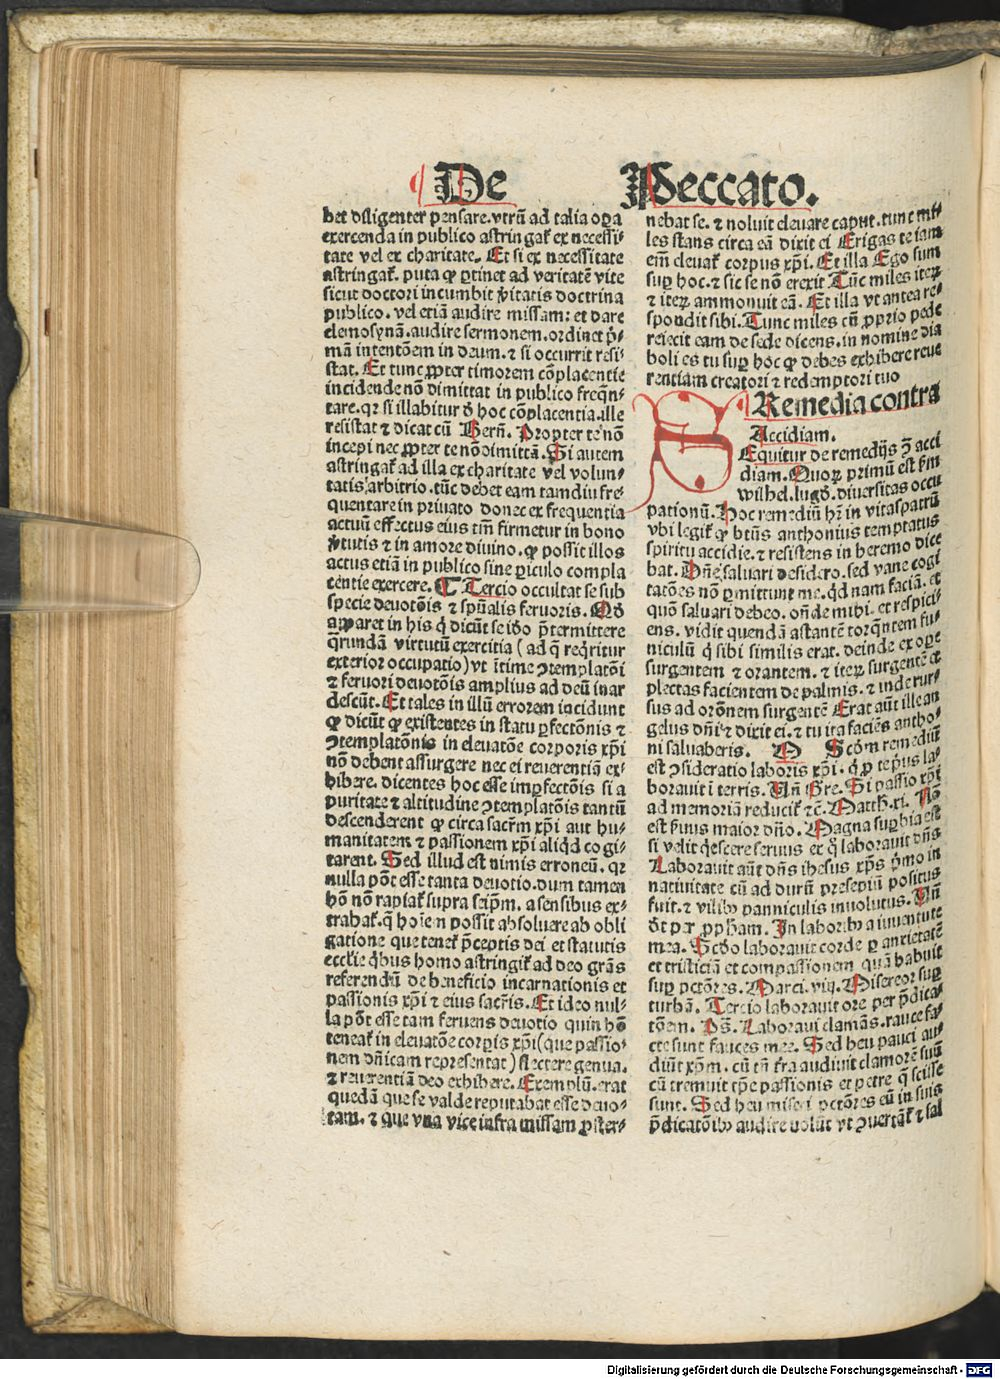 De Peccato.
bet diligenter pensare. vtrũ ad talia oꝑa
exercenda in publico astringat᷑ ex necessi⸗
tate vel ex charitate. Et si ex necessitate
astringat᷑. puta ꝙ ꝑtinet ad veritatẽ vite
sicut doctori incumbit v̾itatis doctrina
publico. vel etiã audire missam: et dare
elemosynã. audire sermonem. ordinet p̾⸗
mã intentõem in deum. ⁊ si occurrit resi⸗
stat. Et tunc ꝓpter timorem cõplacentie
incidende nõ dimittat in publico freq̃n⸗
tare. qꝛ si illabitur ꝟ hoc cõplacentia. ille
resistat ⁊ dicat cũ Bern̄. Propter te nõ
incepi nec ꝓpter te nõ dimittã. Si autem
astringat᷑ ad illa ex charitate vel volun⸗
tatis arbitrio. tũc debet eam tamdiu fre⸗
quentare in priuato donec ex frequentia
actuũ effectus eius tm̃ firmetur in bono
v̾tutis ⁊ in amore diuino. ꝙ possit illos
actus etiã in publico sine ꝑiculo compla
centie exercere. ¶ Tercio occultat se sub
specie deuotõis ⁊ sp̃ualis feruoris. Qđ
apparet in his q̇ dicũt se iđo p̃termittere
q̃rundã virtutũ exercitia (ad q̃ req̇ritur
exterior occupatio) vt ĩtime ↄtemplatõi
⁊ feruori deuotõis amplius ad deũ inar
descũt. Et tales in illũ errorem incidunt
ꝙ dicũt ꝙ existentes in statu ꝑfectõnis ⁊
ↄtemplatõnis in eleuatõe corporis xp̃i
nõ debent assurgere nec ei reuerentiã ex⸗
hibere. dicentes hoc esse imꝑfectõis si a
puritate ⁊ altitudine ↄtemplatõis tantũ
descenderent ꝙ circa sacr̃m xp̃i aut hu⸗
manitatem ⁊ passionem xp̃i aliq̇d cogi⸗
tarent. Sed illud est nimis erroneũ. qꝛ
nulla põt esse tanta deuotio. dum tamen
hõ nõ rapiat᷑ supra seip̃m. a sensibus ex⸗
trahat᷑. q̃ hoĩem possit absoluere ab obli
gatione que tenet᷑ p̃ceptis dei et statutis
ecclĩe q̇bus homo astringit᷑ ad deo gr̃as
referendũ de beneficio incarnationis et
passionis xp̃i ⁊ eius sacr̃is. Et ideo nul⸗
la põt esse tam feruens deuotio quin hõ
teneat᷑ in eleuatõe corꝑis xp̃i (que passio⸗
nem dñicam representat) flectere genua.
⁊ reuerentiã deo exhibere. Exemplũ. erat
quedã que se valde reputabat esse deuo⸗
tam. ⁊ que vna vice infra missam ꝓster⸗
nebat se. ⁊ noluit eleuare caput. tunc mi⸗
les stans circa eã dixit ei Erigas te iam
em̃ eleuat᷑ corpus xp̃i. Et illa Ego sum
suꝑ hoc. ⁊ sic se nõ erexit Tũc miles iteꝝ
⁊ iteꝝ ammonuit eã. Et illa vt antea re⸗
spondit sibi. Tunc miles cũ ꝓprio pede
reiecit eam de sede dicens. in nomine dia
boli es tu suꝑ hoc ꝙ debes exhibere reue
rentiam creatori ⁊ redemptori tuo
Remedia contra
Accidiam.
Sequitur de remedijs ꝯ̃ acci
diam. Quoꝝ primũ est ẜm
wilhel. lugđ. diuersitas occu
pationũ. Hoc remediũ hr̃ in vitaspatrũ
vbi legit᷑ ꝙ btũs anthonius temptatus
spiritu accidie. ⁊ resistens in heremo dice
bat. Dñe saluari desidero. sed vane cogi
tatões nõ ꝑmittunt me. q̇d nam faciã. et
quõ saluari debeo. oñde mihi. et respici⸗
ens. vidit quendã astantẽ torq̃ntem fu⸗
niculũ q̇ sibi similis erat. deinde ex oꝑe
surgentem ⁊ orantem. ⁊ iteꝝ surgentẽ et
plectas facientem de palmis. ⁊ inde rur⸗
sus ad orõnem surgentẽ Erat aũt ille an
gelus dñi ⁊ dixit ei. ⁊ tu ita faciẽs antho⸗
ni saluaberis. O Scđm remediũ
est ↄsideratio laboris xp̃i. q̃ ꝑ tꝑus la⸗
borauit ĩ terris. Uñ Gre. Si passio xp̃i
ad memoriã reducit᷑ ⁊c̃. Matth. xi. Nõ
est ẜuus maior dño. Magna suꝑbia est
si velit q̇escere seruus ex q̇ laborauit dñs
Laborauit aũt dñs ihesus xp̃s p̾mo in
natiuitate cũ ad durũ presepiũ positus
fuit. ⁊ vilibꝰ panniculis inuolutus. Uñ
đt per ꝓpħam. In laboribꝰ a iuuentute
mea. Scđo laborauit corde ꝑ anxietatẽ
et tristiciã et compassionem quã habuit
suꝑ pctõres. Marci. viij. Misereor suꝑ
turbã. Tercio laborauit ore per p̃dica⸗
tõem. Ps̃. Laboraui clamãs. rauce fa⸗
cte sunt fauces mee. Sed heu pauci au⸗
diũt xp̃m. cũ tñ fra audiuit clamorẽ suũ
cũ tremuit tꝑe passionis et petre q̃ scisse
sunt. Sed heu miseri pctõres eũ in suis
p̃dicatõibꝰ audire volũt vt ↄuertãt᷑ ⁊ sal
Digitalisierung gefördert durch die Deutsche Forschungsgemeinschaft - DFG